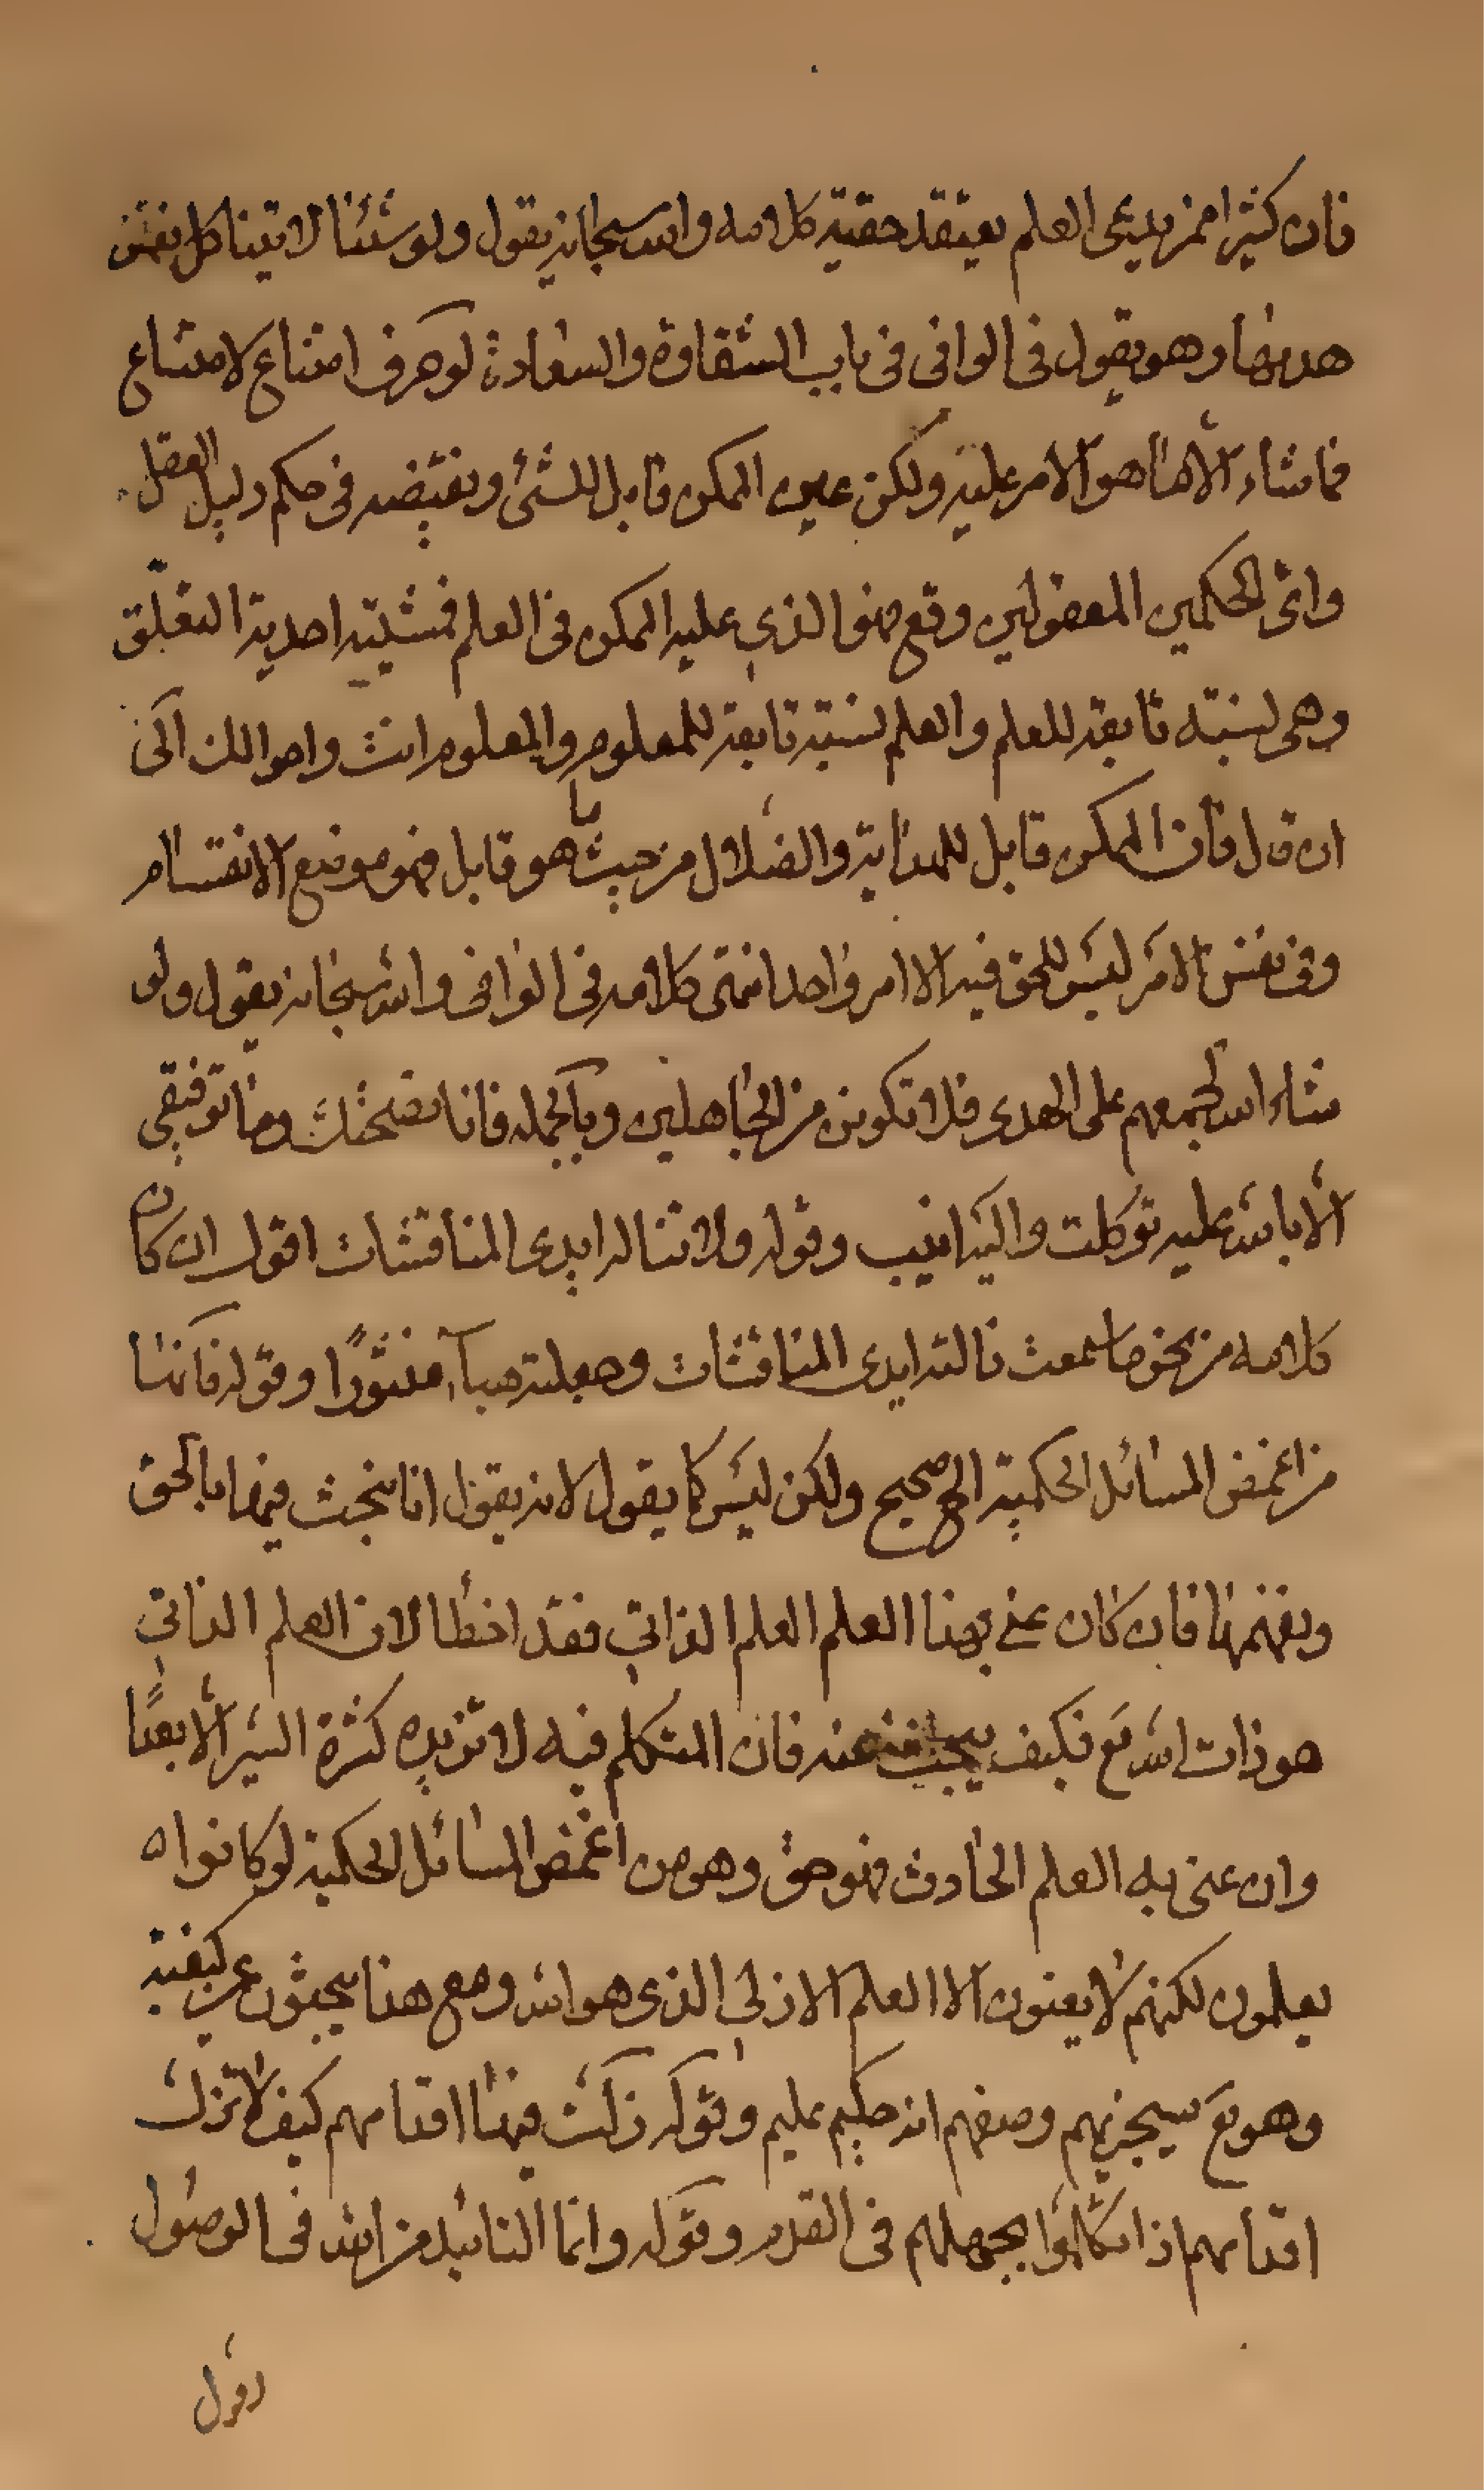 فان كثيرا ممن يدعى العلم يعتقد حقية كلامه والله سبحانه يقول ولو شئنا لاتينا كل نفس
هديها وهو يقول فى الوافى فى باب الشقاوة والسعادة لو حرف امتناع لامتناع
فما شاء الا ما هو الامر عليه ولكن عين الممكن قابل للشئ ونقيضه فى حكم دليل العقل
واى الحكمين المعقولين وقع فهو الذى عليه الممكن فى العلم فمشيته احدية التعلق
وهى نسبة تابعة للعلم والعلم نسبة تابعة للمعلوم والمعلوم انت واحوالك الى
ان قال فان الممكن قابل للهداية والضلال من حيث ما هو قابل فهو موضع الانقسام
وفى نفس الامر ليس للحق فيه الا امر واحد انتهى كلامه فى الوافى والله سبحانه يقول ولو
شاء الله لجمعهم على الهدى فلا تكونن من الجاهلين وبالجملة فانا نصحتك وما توفيقى
الا بالله عليه توكلت واليه انيب وقوله ولا تناله ايدى المناقشات اقول ان كان
كلامه من نحو ما سمعت نالته ايدى المناقشات وجعلته هبآء منثورًا وقوله فانها
من اغمض المسائل الحكمية الخ صحيح ولكن ليس كما يقول لانه يقول انا نبحث فيها بالحق
ونفهمها فان كان عنى بهذا العلم العلم الذاتى فقد اخطا لان العلم الذاتى
هو ذات الله تع فكيف يبحث عنه فان المتكلم فيه لا تزيده كثرة السير الا بعدًا
وان عنى به العلم الحادث فهو حق وهو من اغمض المسائل الحكمية لو كانوا
يعلمون لكنهم لا يعنون الا العلم الازلى الذى هو الله ومع هذا يبحثون عن كيفية
وهو تع سيجزيهم وصفهم انه حكيم عليم وقوله زلت فيها اقدامهم كيف لا تزل
اقدامهم اذا تكلموا بجهلهم فى القدم وقوله وانما التائيد من الله فى الوصول